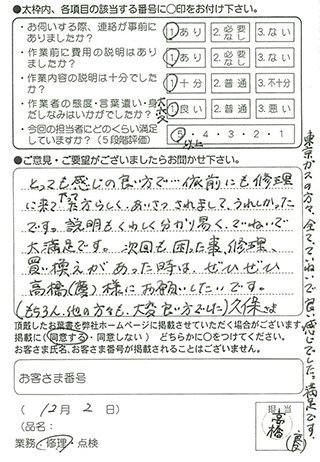 ●太枠内、各項目の該当する番号に○印をお付け下さい。
・お伺いする際、連絡が事前にありましたか?
1.あり 2.必要なし 3.ない
・作業前に費用の説明はありましたか?
1.あり 2.必要なし 3.ない
・作業内容の説明は十分でしたか?
1.十分 2.普通 3.不十分
・作業者の態度・言葉遣い・身だしなみはいかがでしたか?
大変
1.良い 2.普通 3.悪い
・今回の担当者にどのくらい満足していますか?(5段階評価)
5・4・3・2・1
以上
●ご意見・ご要望がございましたらお聞かせ下さい。
とっても感じの良い方で…依前にも修理
に来て下さった方らしく、あいさつされまして、うれしかった
です。説明もくわしく分かり易く、ていねいで
大満足です。次回も困った事、修理、
買い換えがあった時は、ぜひぜひ
高橋(慶)様にお願いしたいです。
(もちろん、他の方々も、大変良い方でした)久保さよ
東京ガスの方々、全て、ていねいで良い感じでした。大満足です。
頂戴したお葉書を弊社ホームページに掲載させていただく場合がございます。
掲載に(同意する・同意しない) どちらかに○をつけてください。
お客さま氏名、お客さま番号が掲載されることはございません。
お客さま番号
(12月2日)
(品名:
業務(修理)点検
担当
高橋
(慶)